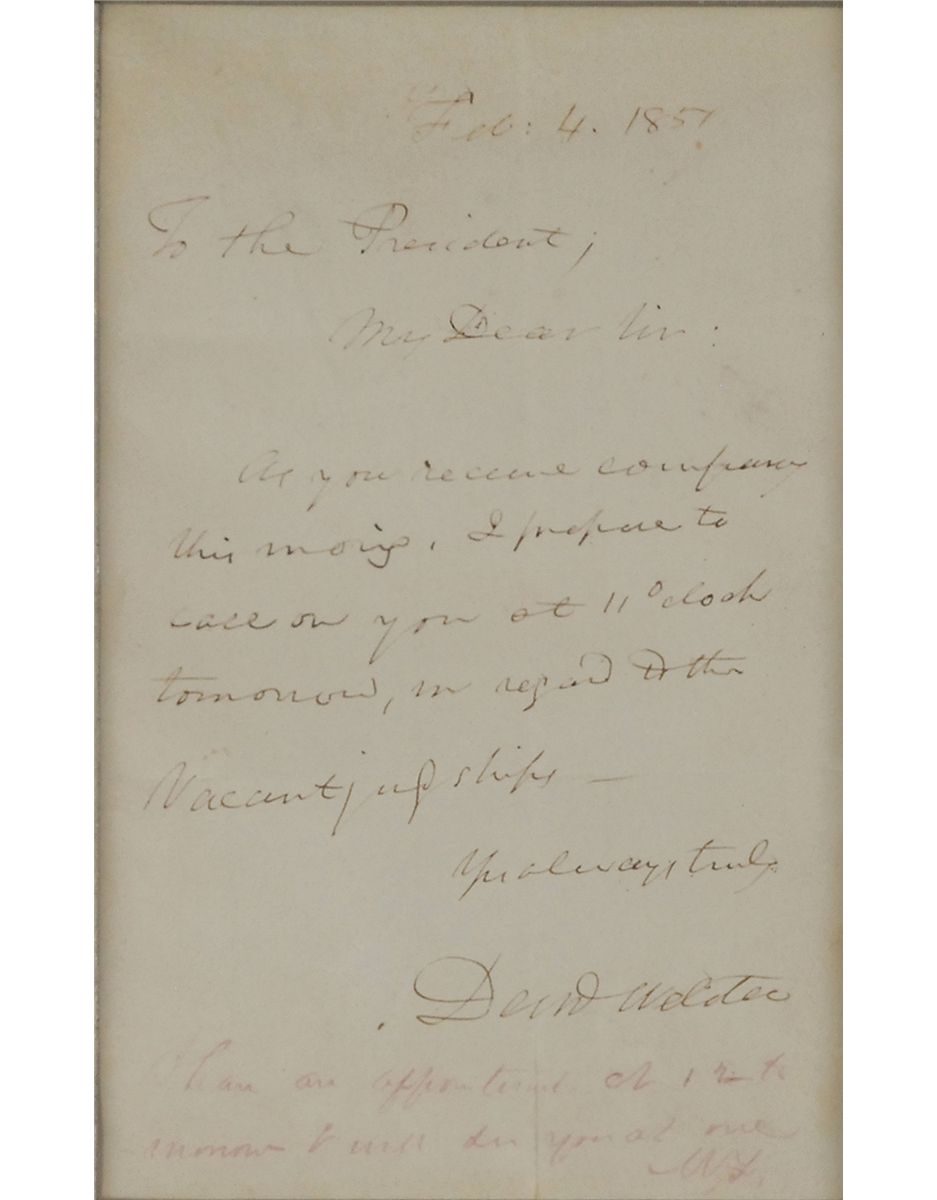 Feb: 4. 1851
To the President;
My Dear Sir:
As you receive company
this morng. I propose to
call on you at 11 o'clock
tomorrow, in regard to the
Vacant judgships —
Yrs always truly
Danl Webster
I have an appointment at 12 to
morrow & will see you at one
M.F.